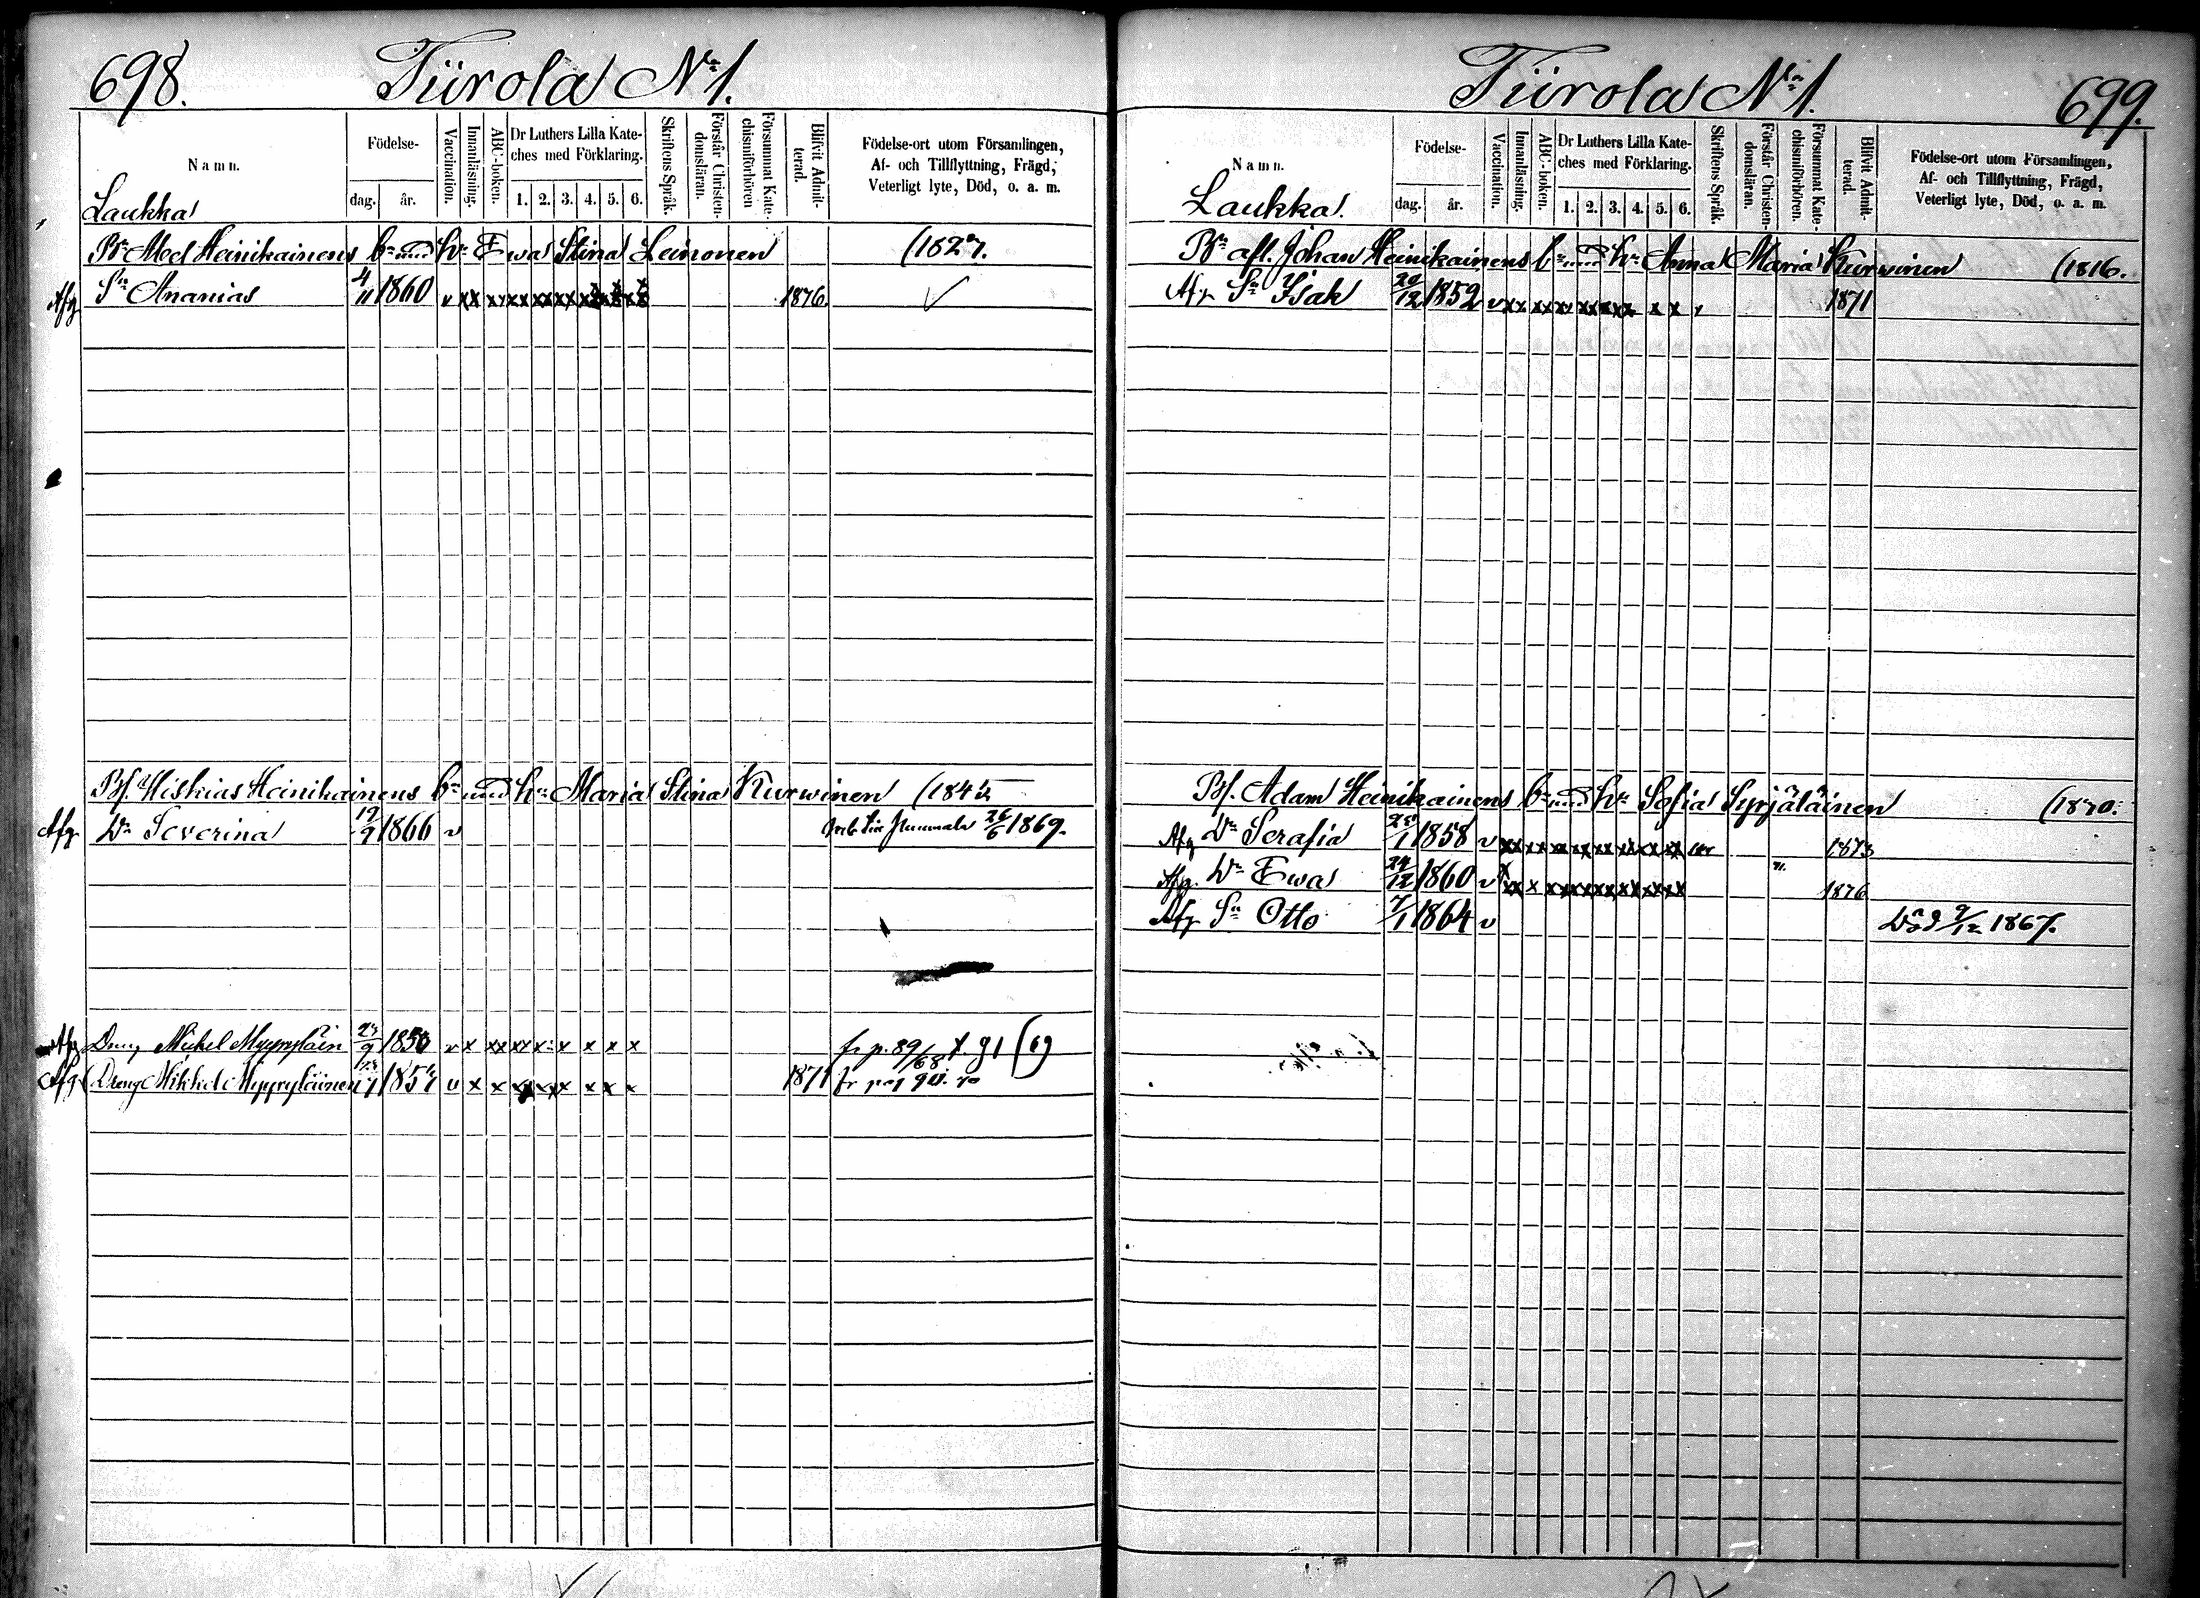 698. Tiirola No 1.
Namn. Födelse- dag. år. Vaccination. Innanläsning. ABC-boken. Dr Luthers Lilla Kateches med Förklaring. 1. 2. 3. 4. 5. 6. Skriftens Språk. Förstår Christendomsläran. Försummat Katechismiförhören Blifvit Admitterad. Födelse-ort utom Församlingen, Af- och Tillflyttning, Frägd, Veterligt lyte, Död, o. a. m.
Laukka
Bn Abel Heinikainens bn med hn Ewa Stina Leinonen (1827.
Afg Sn Ananias 4/11 1860 v xx xv xx xx xx 1876. ✓
Bf. Hiskias Heinikainens bn med hn Maria Stina Kurwinen (184
Afg Dr Severina 19/9 1866 v 26/6 1869.
Afg Dreng Mickel Myyryläin 23/9 185 v x xx xx x x x x x fr p. 89/68 f. 91 (69
Afg Dreng Mikkel Myyryläinen 185 v x x x x x x x 1871 fr pag 90.
699. Tiirola No 1.
Namn. Födelse- dag. år. Vaccination. Innanläsning. ABC-boken. Dr Luthers Lilla Kateches med Förklaring. 1. 2. 3. 4. 5. 6. Skriftens Språk. Förstår Christendomsläran. Försummat Katechismiförhören. Blifvit Admitterad. Födelse-ort utom Församlingen, Af- och Tillflyttning, Frägd, Veterligt lyte, Död, o. a. m.
Laukka.
Bn afl. Johan Heinikainens bn med hn Anna Maria Kurwinen (1816.
Afg Sn Isak /12 1852 v xx xx xx xx xx x x 1871
Bf. Adam Heinikainens bn med hn Sofia Syrjäläinen (18
Afg Dr Serafia /1 1858 v xx xx xx xx xx xx xx 1873
Afg. Dr Ewa 24/12 1860 v xx x xx xx xx xx xx 1876
Afg Sn Otto 7/1 1864 v Död 9/12 1867.